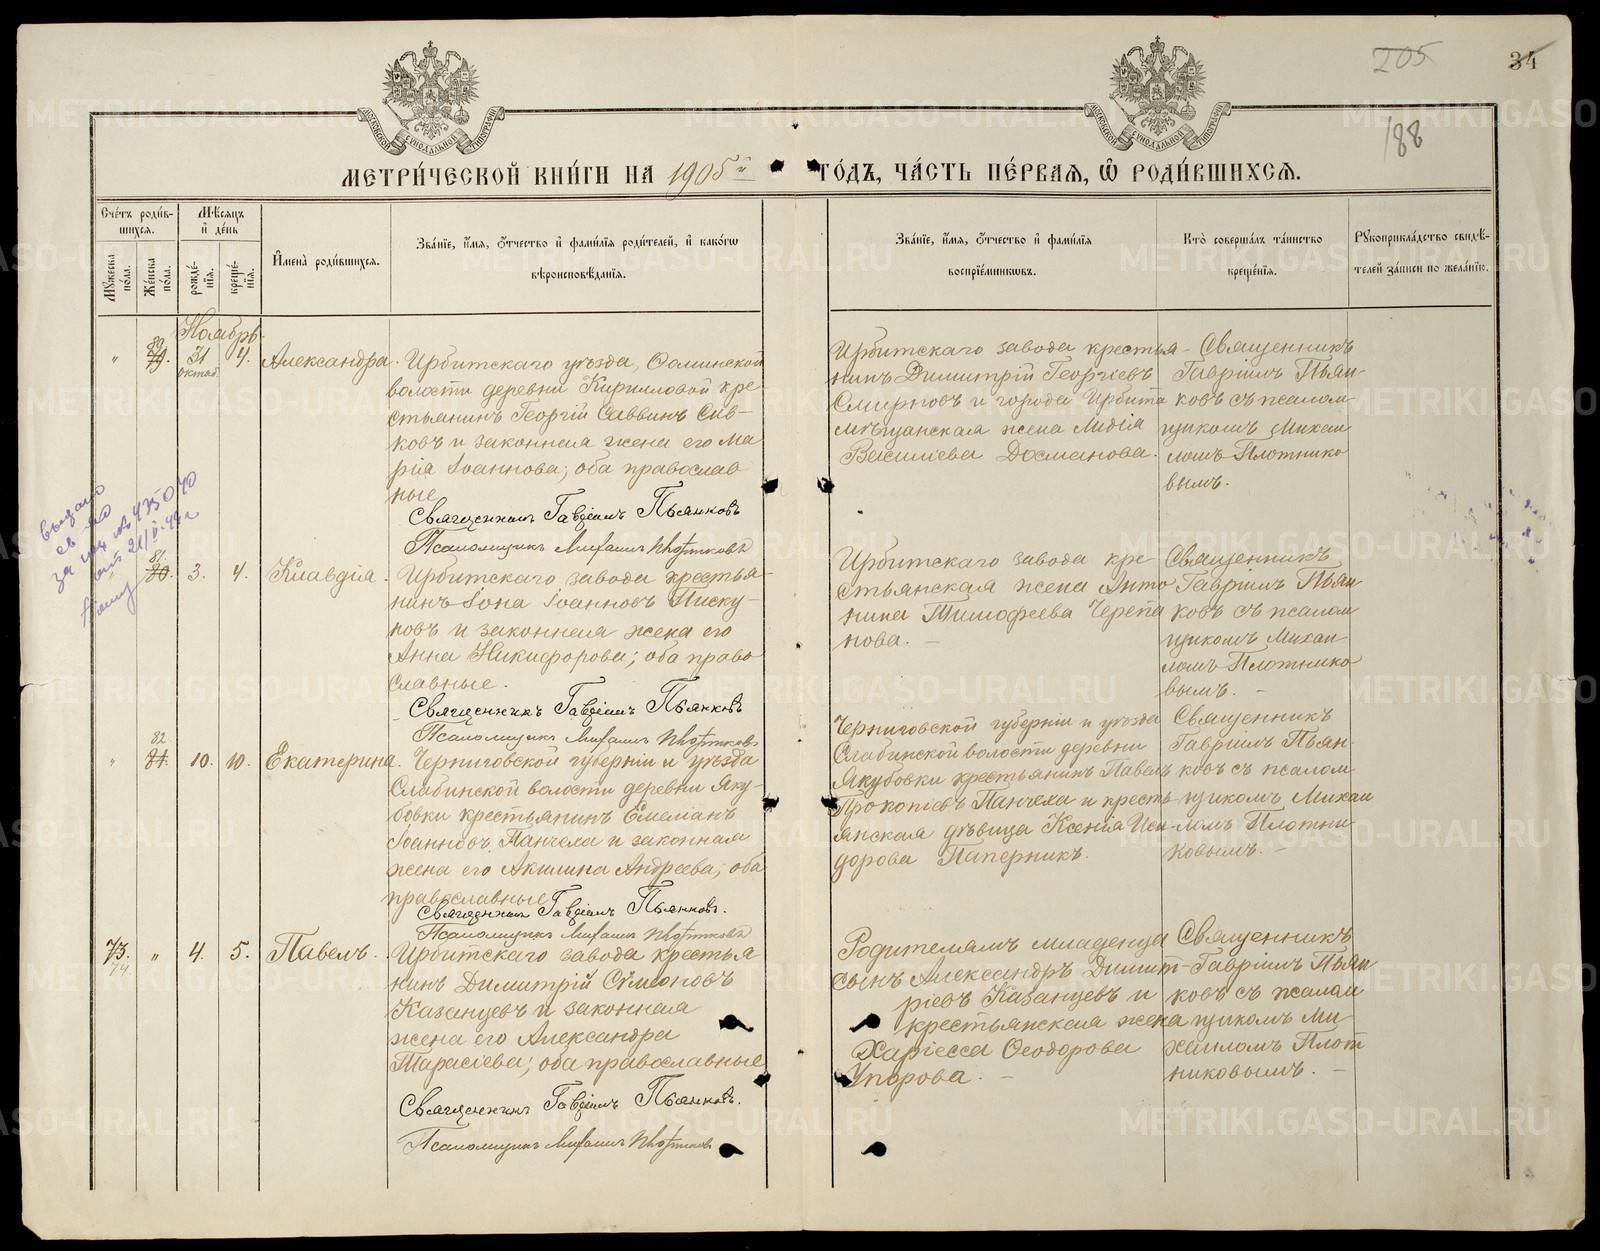 205
34
188
МЕТРИ́ЧЕСКОЙ КНИ́ГИ НА 1905й ГО́ДЪ, ЧА́СТЬ ПЕ́РВАЯ, Ѡ҆ РОДИ́ВШИХСЯ.
Сче́тъ роди́в-
шихся.
Мѣ́сяцъ
и҆ де́нь
Мꙋ́жеска
по́ла.
Же́нска
по́ла.
рожде́-
нїя.
креще́-
нїя.
И҆мена̀ роди́вшихся.
Зва́нїе, и҆́мя, ѻ҆́тчество и҆ фами́лїя роди́телей, и҆ како́гѡ
вѣроисповѣ́данїя.
Зва́нїе, и҆́мя, ѻ҆́тчество и҆ фами́лїя
воспрїе́мникѡвъ.
Кто̀ соверша́лъ та́инство
креще́нїя.
Рꙋкоприкла́дство свидѣ́-
телей за́писи по жела́нїю.
Ноябрь
" 79. 31 октяб. 4. Александра.
Ирбитскаго уѣзда, Осминской
волости деревни Кирилловой кре
стьянинъ Георгій Саввинъ Сив-
ковъ и законная жена его Ма
рія Іоаннова; оба православ
ные
Священникъ Гавріилъ Пьянковъ
Псаломщикъ Михаилъ Плотниковъ
Ирбитскаго завода крестья-
нинъ Димитрій Георгіевъ
Смирновъ и города Ирбита
мѣщанская жена Лидія
Васильева Досманова.
Священникъ
Гавріилъ Пьян-
ковъ съ псалом-
щикомъ Михаи
ломъ Плотнико
вымъ.
выдано
за
81.
80. 3. 4. Клавдія.
Ирбитскаго завода крестья-
нинъ Іона Іоанновъ Писку-
новъ и законная жена его
Анна Никифорова; оба право
славные.
Священникъ Гавріилъ Пьянковъ
Псаломщикъ Михаилъ Плотниковъ
Ирбитскаго завода кре-
стьянская жена Анто
нина Тимофеева Черепа
нова. -
Священникъ
Гавріилъ Пьян-
ковъ съ псалом
щикомъ Михаи-
ломъ Плотнико
вымъ. -
82
" 81. 10. 10. Екатерина.
Черниговской губерніи и уѣзда
Слабинской волости деревни Яку-
бовки крестьянинъ Емеліанъ
Іоанновъ Панчеха и законная
жена его Акилина Андреева; оба
православные
Священникъ Гавріилъ Пьянковъ.
Псаломщикъ Михаилъ Плотниковъ
Черниговской губерніи и уѣзда
Слабинской волости деревни
Якубовки крестьянинъ Павелъ
Прокопіевъ Панчеха и кресть-
янская дѣвица Ксенія Иси-
дорова Паперникъ.
Священникъ
Гавріилъ Пьян-
ковъ съ псалом
щикомъ Михаи
ломъ Плотни
ковымъ. -
73. " 4. 5. Павелъ.
74
Ирбитскаго завода крестья
нинъ Димитрій Сѵмеоновъ
Казанцевъ и законная
жена его Александра
Тарасіева; оба православные
Священникъ Гавріилъ Пьянковъ.
Псаломщикъ Михаилъ Плотниковъ
Родителямъ младенца
сынъ Александръ Димит-
ріевъ Казанцевъ и
крестьянская жена
Харіесса Ѳеодорова
Упорова. -
Священникъ
Гавріилъ Пьян
ковъ съ псалом
щикомъ Ми
хаиломъ Плот
никовымъ. -